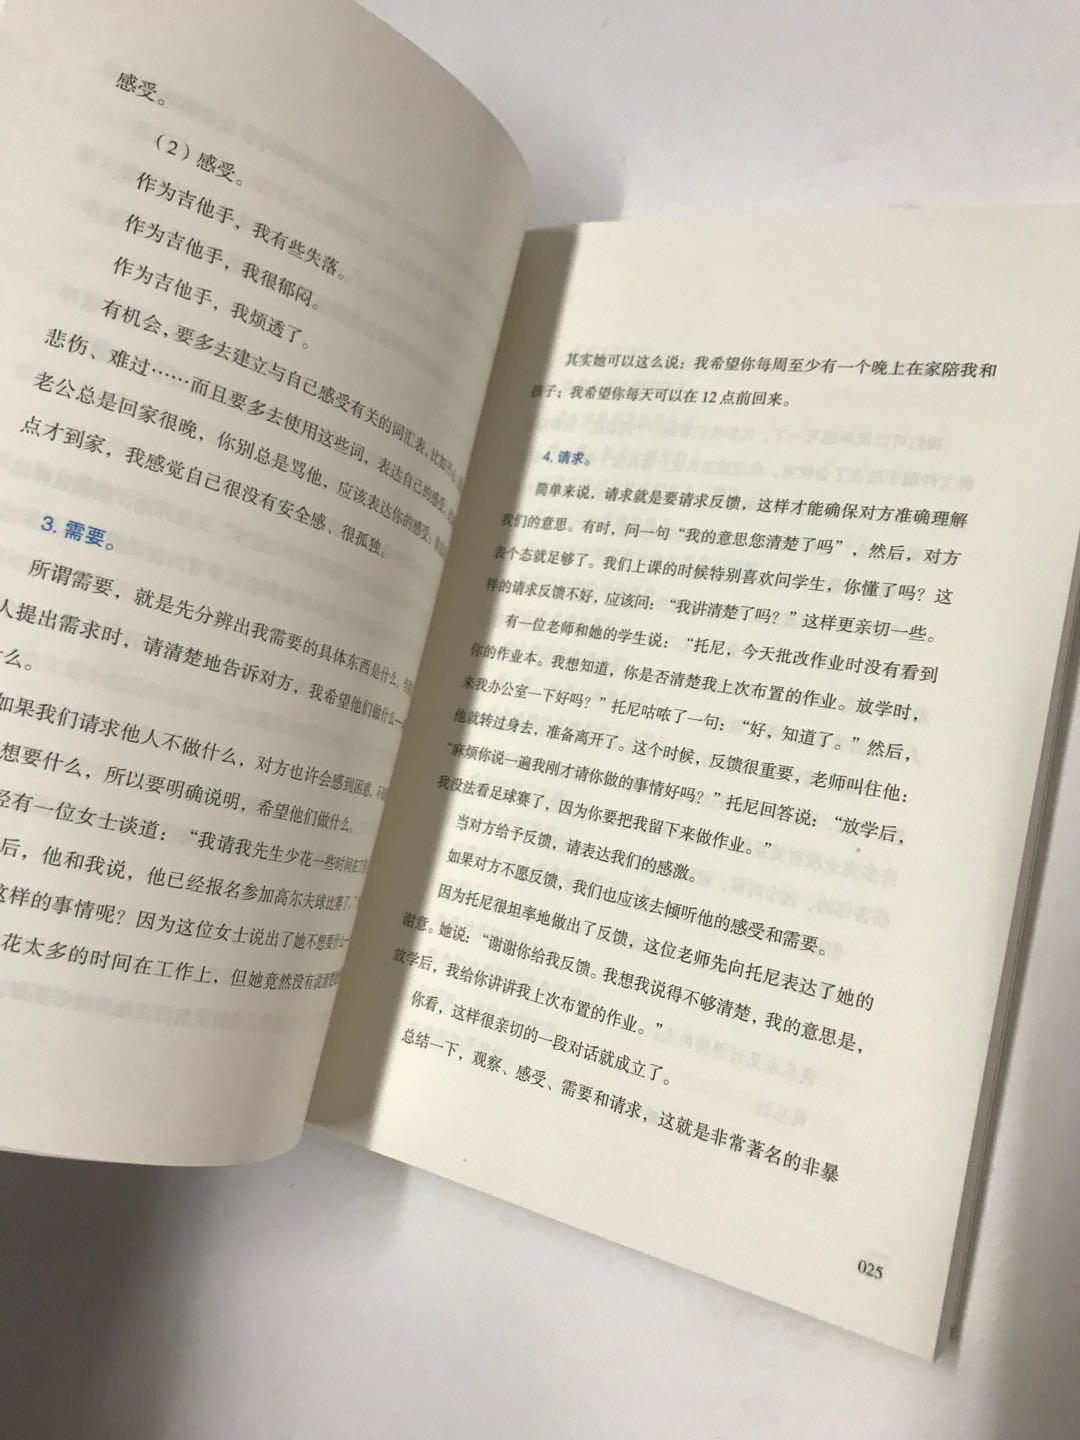 感受。
（2）感受。
作为吉他手，我有些失落。
作为吉他手，我很郁闷。
作为吉他手，我烦透了。
有机会，要多去建立与自己感受有关的词汇表，比如开心、
悲伤、难过……而且要多去使用这些词，表达自己的感受。
老公总是回家很晚，你别总是骂他，应该表达你的感受：
点才到家，我感觉自己很没有安全感、很孤独。
3. 需要。
所谓需要，就是先分辨出我需要的具体东西是什么。
人提出需求时，请清楚地告诉对方，我希望他们做什么
什么。
如果我们请求他人不做什么，对方也许会感到困惑，
想要什么，所以要明确说明，希望他们做什么。
经有一位女士谈道：“我请我先生少花一些时间在工
后，他和我说，他已经报名参加高尔夫球比赛了。
这样的事情呢？因为这位女士说出了她不想要什么
花太多的时间在工作上，但她竟然没有说清楚
其实她可以这么说：我希望你每周至少有一个晚上在家陪我和
孩子；我希望你每天可以在12点前回来。
4. 请求。
简单来说，请求就是要请求反馈，这样才能确保对方准确理解
我们的意思。有时，问一句“我的意思您清楚了吗”，然后，对方
表个态就足够了。我们上课的时候特别喜欢问学生，你懂了吗？这
样的请求反馈不好，应该问：“我讲清楚了吗？”这样更亲切一些。
有一位老师和她的学生说：“托尼，今天批改作业时没有看到
你的作业本。我想知道，你是否清楚我上次布置的作业。放学时，
来我办公室一下好吗？”托尼咕哝了一句：“好，知道了。”然后，
他就转过身去，准备离开了。这个时候，反馈很重要，老师叫住他：
“麻烦你说一遍我刚才请你做的事情好吗？”托尼回答说：“放学后，
我没法看足球赛了，因为你要把我留下来做作业。”
当对方给予反馈，请表达我们的感激。
如果对方不愿反馈，我们也应该去倾听他的感受和需要。
因为托尼很坦率地做出了反馈，这位老师先向托尼表达了她的
谢意。她说：“谢谢你给我反馈。我想我说得不够清楚，我的意思是，
放学后，我给你讲讲我上次布置的作业。”
你看，这样很亲切的一段对话就成立了。
总结一下，观察、感受、需要和请求，这就是非常著名的非暴
025